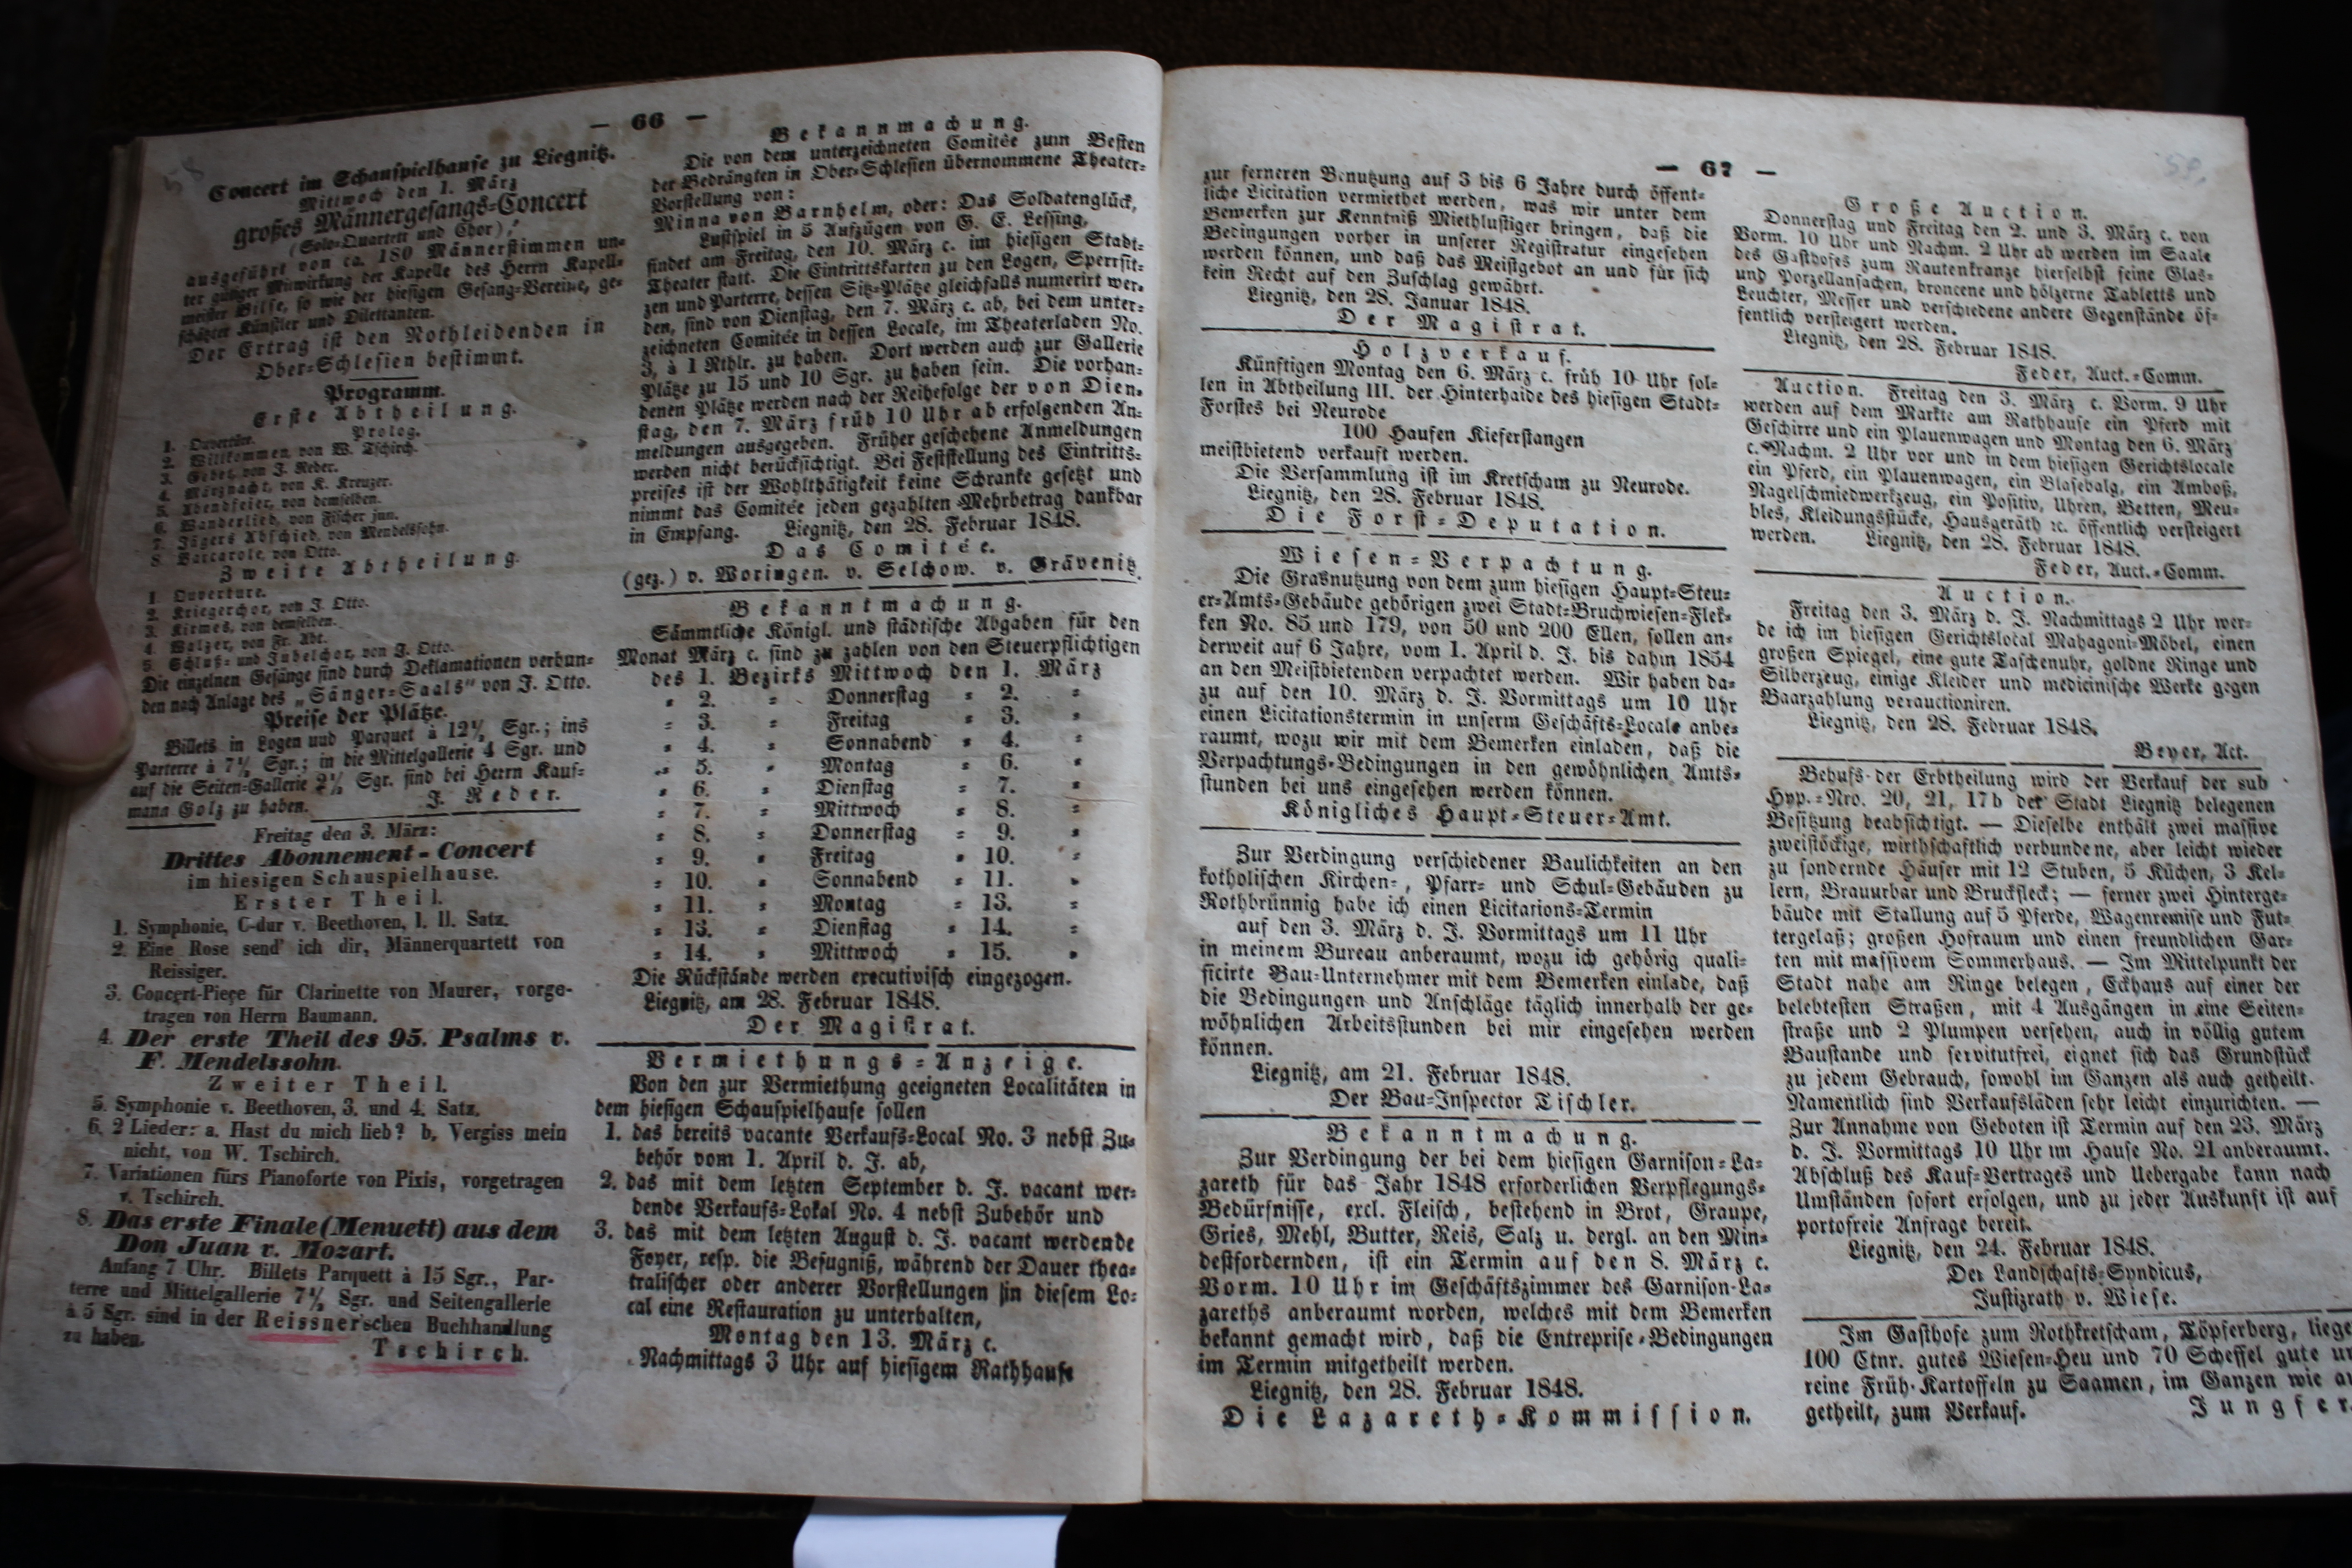 — 66 —
Concert im Schauspielhause zu Liegnitz.
Mittwoch den 1. März
großes Männergesangs-Concert
(Solo-Quartett und Chor),
ausgeführt von ca. 180 Männerstimmen un-
ter gütiger Mitwirkung der Kapelle des Herrn Kapell-
meister Bilse, so wie der hiesigen Gesang-Vereine, ge-
schätzter Künstler und Dilettanten.
Der Ertrag ist den Nothleidenden in
Ober-Schlesien bestimmt.
Programm.
Erste Abtheilung.
Prolog.
1. Ouvertüre.
2. Willkommen, von W. Tschirch.
3. Gebet, von J. Reder.
4. Märznacht, von K. Kreuzer.
5. Abendfeier, von demselben.
6. Wanderlied, von Fischer jun.
7. Jägers Abschied, von Mendelssohn.
8. Barcarole, von Otto.
Zweite Abtheilung.
1. Ouverture.
2. Kriegerchor, von J. Otto.
3. Kirmes, von demselben.
4. Walzer, von Fr. Abt.
5. Schluß- und Jubelchor, von J. Otto.
Die einzelnen Gesänge sind durch Deklamationen verbun-
den nach Anlage des „Sänger-Saals“ von J. Otto.
Preise der Plätze.
Billets in Logen und Parquet à 12½ Sgr.; ins
Parterre à 7½ Sgr.; in die Mittelgallerie 4 Sgr. und
auf die Seiten-Gallerie 2½ Sgr. sind bei Herrn Kauf-
mann Golz zu haben. J. Reder.
Freitag den 3. März:
Drittes Abonnement-Concert
im hiesigen Schauspielhause.
Erster Theil.
1. Symphonie, C-dur v. Beethoven, I. II. Satz.
2. Eine Rose send' ich dir, Männerquartett von
Reissiger.
3. Concert-Piece für Clarinette von Maurer, vorge-
tragen von Herrn Baumann.
4. Der erste Theil des 95. Psalms v.
F. Mendelssohn.
Zweiter Theil.
5. Symphonie v. Beethoven, 3. und 4. Satz.
6. 2 Lieder: a. Hast du mich lieb? b. Vergiss mein
nicht, von W. Tschirch.
7. Variationen fürs Pianoforte von Pixis, vorgetragen
v. Tschirch.
8. Das erste Finale (Menuett) aus dem
Don Juan v. Mozart.
Anfang 7 Uhr. Billets Parquett à 15 Sgr., Par-
terre und Mittelgallerie 7½ Sgr. und Seitengallerie
à 5 Sgr. sind in der Reissner'schen Buchhandlung
zu haben. Tschirch.
Bekannmachung.
Die von dem unterzeichneten Comitée zum Besten
der Bedrängten in Ober-Schlesien übernommene Theater-
Vorstellung von:
Minna von Barnhelm, oder: Das Soldatenglück,
Lustspiel in 5 Aufzügen von G. E. Lessing,
findet am Freitag, den 10. März c. im hiesigen Stadt-
Theater statt. Die Eintrittskarten zu den Logen, Sperrsit-
zen und Parterre, dessen Sitz-Plätze gleichfalls numerirt wer-
den, sind von Dienstag, den 7. März c. ab, bei dem unter-
zeichneten Comitée in dessen Locale, im Theaterladen No.
3, à 1 Rthlr. zu haben. Dort werden auch zur Gallerie
Plätze zu 15 und 10 Sgr. zu haben sein. Die vorhan-
denen Plätze werden nach der Reihefolge der von Dien-
stag, den 7. März früh 10 Uhr ab erfolgenden An-
meldungen ausgegeben. Früher geschehene Anmeldungen
werden nicht berücksichtigt. Bei Feststellung des Eintritts-
preises ist der Wohlthätigkeit keine Schranke gesetzt und
nimmt das Comitée jeden gezahlten Mehrbetrag dankbar
in Empfang. Liegnitz, den 28. Februar 1848.
Das Comitée.
(gez.) v. Woringen. v. Selchow. v. Grävenitz.
Bekanntmachung.
Sämmtliche Königl. und städtische Abgaben für den
Monat März c. sind zu zahlen von den Steuerpflichtigen
des 1. Bezirks Mittwoch den 1. März
= 2. = Donnerstag = 2. =
= 3. = Freitag = 3. =
= 4. = Sonnabend = 4. =
= 5. = Montag = 6. =
= 6. = Dienstag = 7. =
= 7. = Mittwoch = 8. =
= 8. = Donnerstag = 9. =
= 9. = Freitag = 10. =
= 10. = Sonnabend = 11. =
= 11. = Montag = 13. =
= 13. = Dienstag = 14. =
= 14. = Mittwoch = 15. =
Die Rückstände werden executivisch eingezogen.
Liegnitz, am 28. Februar 1848.
Der Magistrat.
Vermiethungs-Anzeige.
Von den zur Vermiethung geeigneten Localitäten in
dem hiesigen Schauspielhause sollen
1. das bereits vacante Verkaufs-Local No. 3 nebst Zu-
behör vom 1. April d. J. ab,
2. das mit dem letzten September d. J. vacant wer-
dende Verkaufs-Lokal No. 4 nebst Zubehör und
3. das mit dem letzten August d. J. vacant werdende
Foyer, resp. die Befugniß, während der Dauer thea-
tralischer oder anderer Vorstellungen in diesem Lo-
cal eine Restauration zu unterhalten,
Montag den 13. März c.
Nachmittags 3 Uhr auf hiesigem Rathhause
— 67 —
zur ferneren Benutzung auf 3 bis 6 Jahre durch öffent-
liche Licitation vermiethet werden, was wir unter dem
Bemerken zur Kenntniß Miethlustiger bringen, daß die
Bedingungen vorher in unserer Registratur eingesehen
werden können, und daß das Meistgebot an und für sich
kein Recht auf den Zuschlag gewährt.
Liegnitz, den 28. Januar 1848.
Der Magistrat.
Holzverkauf.
Künftigen Montag den 6. März c. früh 10 Uhr sol-
len in Abtheilung III. der Hinterhaide des hiesigen Stadt-
Forstes bei Neurode
100 Haufen Kieferstangen
meistbietend verkauft werden.
Die Versammlung ist im Kretscham zu Neurode.
Liegnitz, den 28. Februar 1848.
Die Forst-Deputation.
Wiesen-Verpachtung.
Die Grasnutzung von dem zum hiesigen Haupt-Steu-
er-Amts-Gebäude gehörigen zwei Stadt-Bruchwiesen-Flek-
ken No. 85 und 179, von 50 und 200 Ellen, sollen an-
derweit auf 6 Jahre, vom 1. April d. J. bis dahin 1854
an den Meistbietenden verpachtet werden. Wir haben da-
zu auf den 10. März d. J. Vormittags um 10 Uhr
einen Licitationstermin in unserm Geschäfts-Locale anbe-
raumt, wozu wir mit dem Bemerken einladen, daß die
Verpachtungs-Bedingungen in den gewöhnlichen Amts-
stunden bei uns eingesehen werden können.
Königliches Haupt-Steuer-Amt.
Zur Verdingung verschiedener Baulichkeiten an den
kotholischen Kirchen-, Pfarr- und Schul-Gebäuden zu
Rothbrünnig habe ich einen Licitarions-Termin
auf den 3. März d. J. Vormittags um 11 Uhr
in meinem Bureau anberaumt, wozu ich gehörig quali-
ficirte Bau-Unternehmer mit dem Bemerken einlade, daß
die Bedingungen und Anschläge täglich innerhalb der ge-
wöhnlichen Arbeitsstunden bei mir eingesehen werden
können.
Liegnitz, am 21. Februar 1848.
Der Bau-Inspector Tischler.
Bekanntmachung.
Zur Verdingung der bei dem hiesigen Garnison-La-
zareth für das Jahr 1848 erforderlichen Verpflegungs-
Bedürfnisse, excl. Fleisch, bestehend in Brot, Graupe,
Gries, Mehl, Butter, Reis, Salz u. dergl. an den Min-
destfordernden, ist ein Termin auf den 8. März c.
Vorm. 10 Uhr im Geschäftszimmer des Garnison-La-
zareths anberaumt worden, welches mit dem Bemerken
bekannt gemacht wird, daß die Entreprise-Bedingungen
im Termin mitgetheilt werden.
Liegnitz, den 28. Februar 1848.
Die Lazareth-Kommission.
Große Auction.
Donnerstag und Freitag den 2. und 3. März c. von
Vorm. 10 Uhr und Nachm. 2 Uhr ab werden im Saale
des Gasthofes zum Rautenkranze hierselbst feine Glas-
und Porzellansachen, broncene und hölzerne Tabletts und
Leuchter, Messer und verschiedene andere Gegenstände öf-
fentlich versteigert werden.
Liegnitz, den 28. Februar 1848.
Feder, Auct.-Comm.
Auction. Freitag den 3. März c. Vorm. 9 Uhr
werden auf dem Markte am Rathhause ein Pferd mit
Geschirre und ein Plauenwagen und Montag den 6. März
c. Nachm. 2 Uhr vor und in dem hiesigen Gerichtslocale
ein Pferd, ein Plauenwagen, ein Blasebalg, ein Amboß,
Nagelschmiedwerkzeug, ein Positiv, Uhren, Betten, Meu-
bles, Kleidungsstücke, Hausgeräth ꝛc. öffentlich versteigert
werden. Liegnitz, den 28. Februar 1848.
Feder, Auct.-Comm.
Auction.
Freitag den 3. März d. J. Nachmittags 2 Uhr wer-
de ich im hiesigen Gerichtslocal Mahagoni-Möbel, einen
großen Spiegel, eine gute Taschenuhr, goldne Ringe und
Silberzeug, einige Kleider und medicinische Werke gegen
Baarzahlung verauctioniren.
Liegnitz, den 28. Februar 1848.
Beyer, Act.
Behufs der Erbtheilung wird der Verkauf der sub
Hyp.-Nro. 20, 21, 17b der Stadt Liegnitz belegenen
Besitzung beabsichtigt. — Dieselbe enthält zwei massive
zweistöckige, wirthschaftlich verbundene, aber leicht wieder
zu sondernde Häuser mit 12 Stuben, 5 Küchen, 3 Kel-
lern, Brauurbar und Bruckfleck; — ferner zwei Hinterge-
bäude mit Stallung auf 5 Pferde, Wagenremise und Fut-
tergelaß; großen Hofraum und einen freundlichen Gar-
ten mit massivem Sommerhaus. — Im Mittelpunkt der
Stadt nahe am Ringe belegen, Eckhaus auf einer der
belebtesten Straßen, mit 4 Ausgängen in eine Seiten-
straße und 2 Plumpen versehen, auch in völlig gutem
Baustande und servitutfrei, eignet sich das Grundstück
zu jedem Gebrauch, sowohl im Ganzen als auch getheilt.
Namentlich sind Verkaufsläden sehr leicht einzurichten. —
Zur Annahme von Geboten ist Termin auf den 23. März
d. J. Vormittags 10 Uhr im Hause No. 21 anberaumt.
Abschluß des Kauf-Vertrages und Uebergabe kann nach
Umständen sofort erfolgen, und zu jeder Auskunft ist auf
portofreie Anfrage bereit.
Liegnitz, den 24. Februar 1848.
Der Landschafts-Syndicus,
Justizrath v. Wiese.
Im Gasthofe zum Rothkretscham, Töpferberg, liege
100 Ctnr. gutes Wiesen-Heu und 70 Scheffel gute un
reine Früh-Kartoffeln zu Saamen, im Ganzen wie au
getheilt, zum Verkauf. Jungfer.